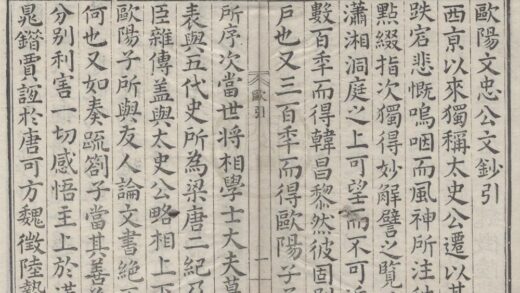 歐陽文忠公文鈔引
西京以來獨稱太史公遷以其
跌宕悲慨嗚咽而風神所注往
點綴指次獨得妙解譬之覽
瀟湘洞庭之上可望而不可
數百年而得韓昌黎然彼固別
戸也又三百年而得歐陽子
歐引
一
所序次當世將相學士大夫墓
表與五代史所為梁唐二紀及
臣雜傳盖與太史公略相上下
歐陽子所與友人論文書絕
何也又如奏疏劄子當其善
分別利害一切感悟主上於漢
晁錯賈誼於唐可方魏徵陸